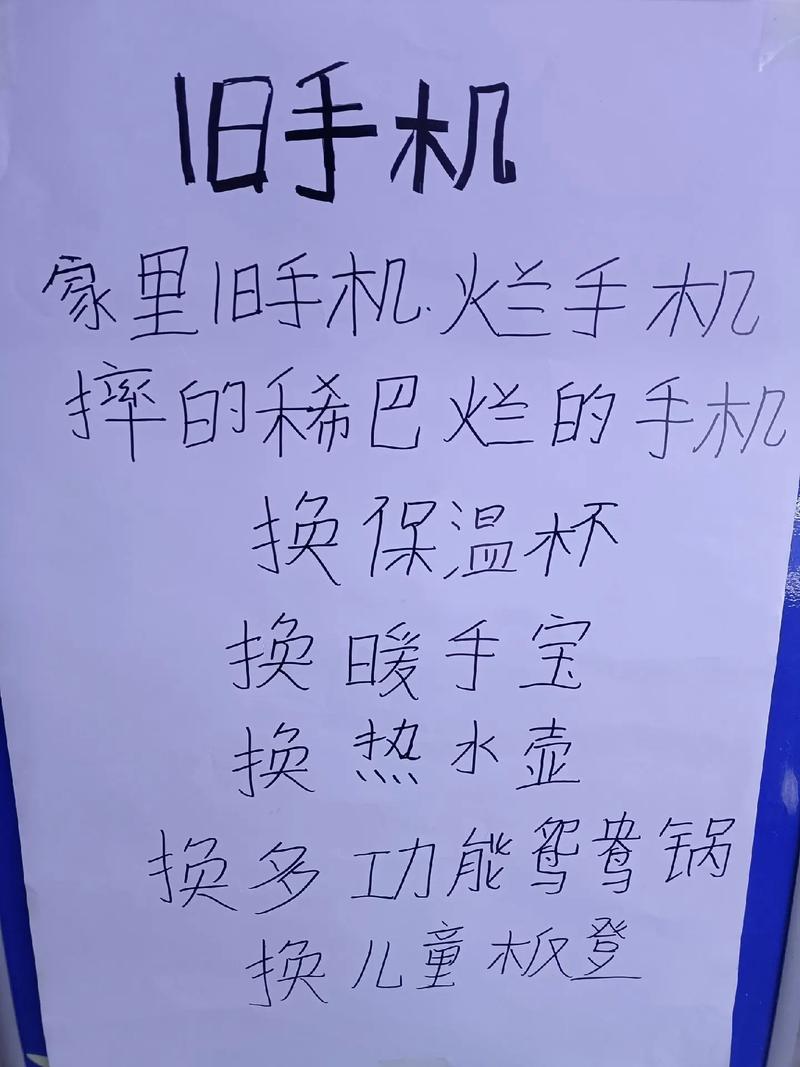 旧手机
家里旧手机.烂手机
摔的稀巴烂的手机
换保温杯
换暖手宝
换热水壶
换多功能鸳鸯锅
换儿童板登